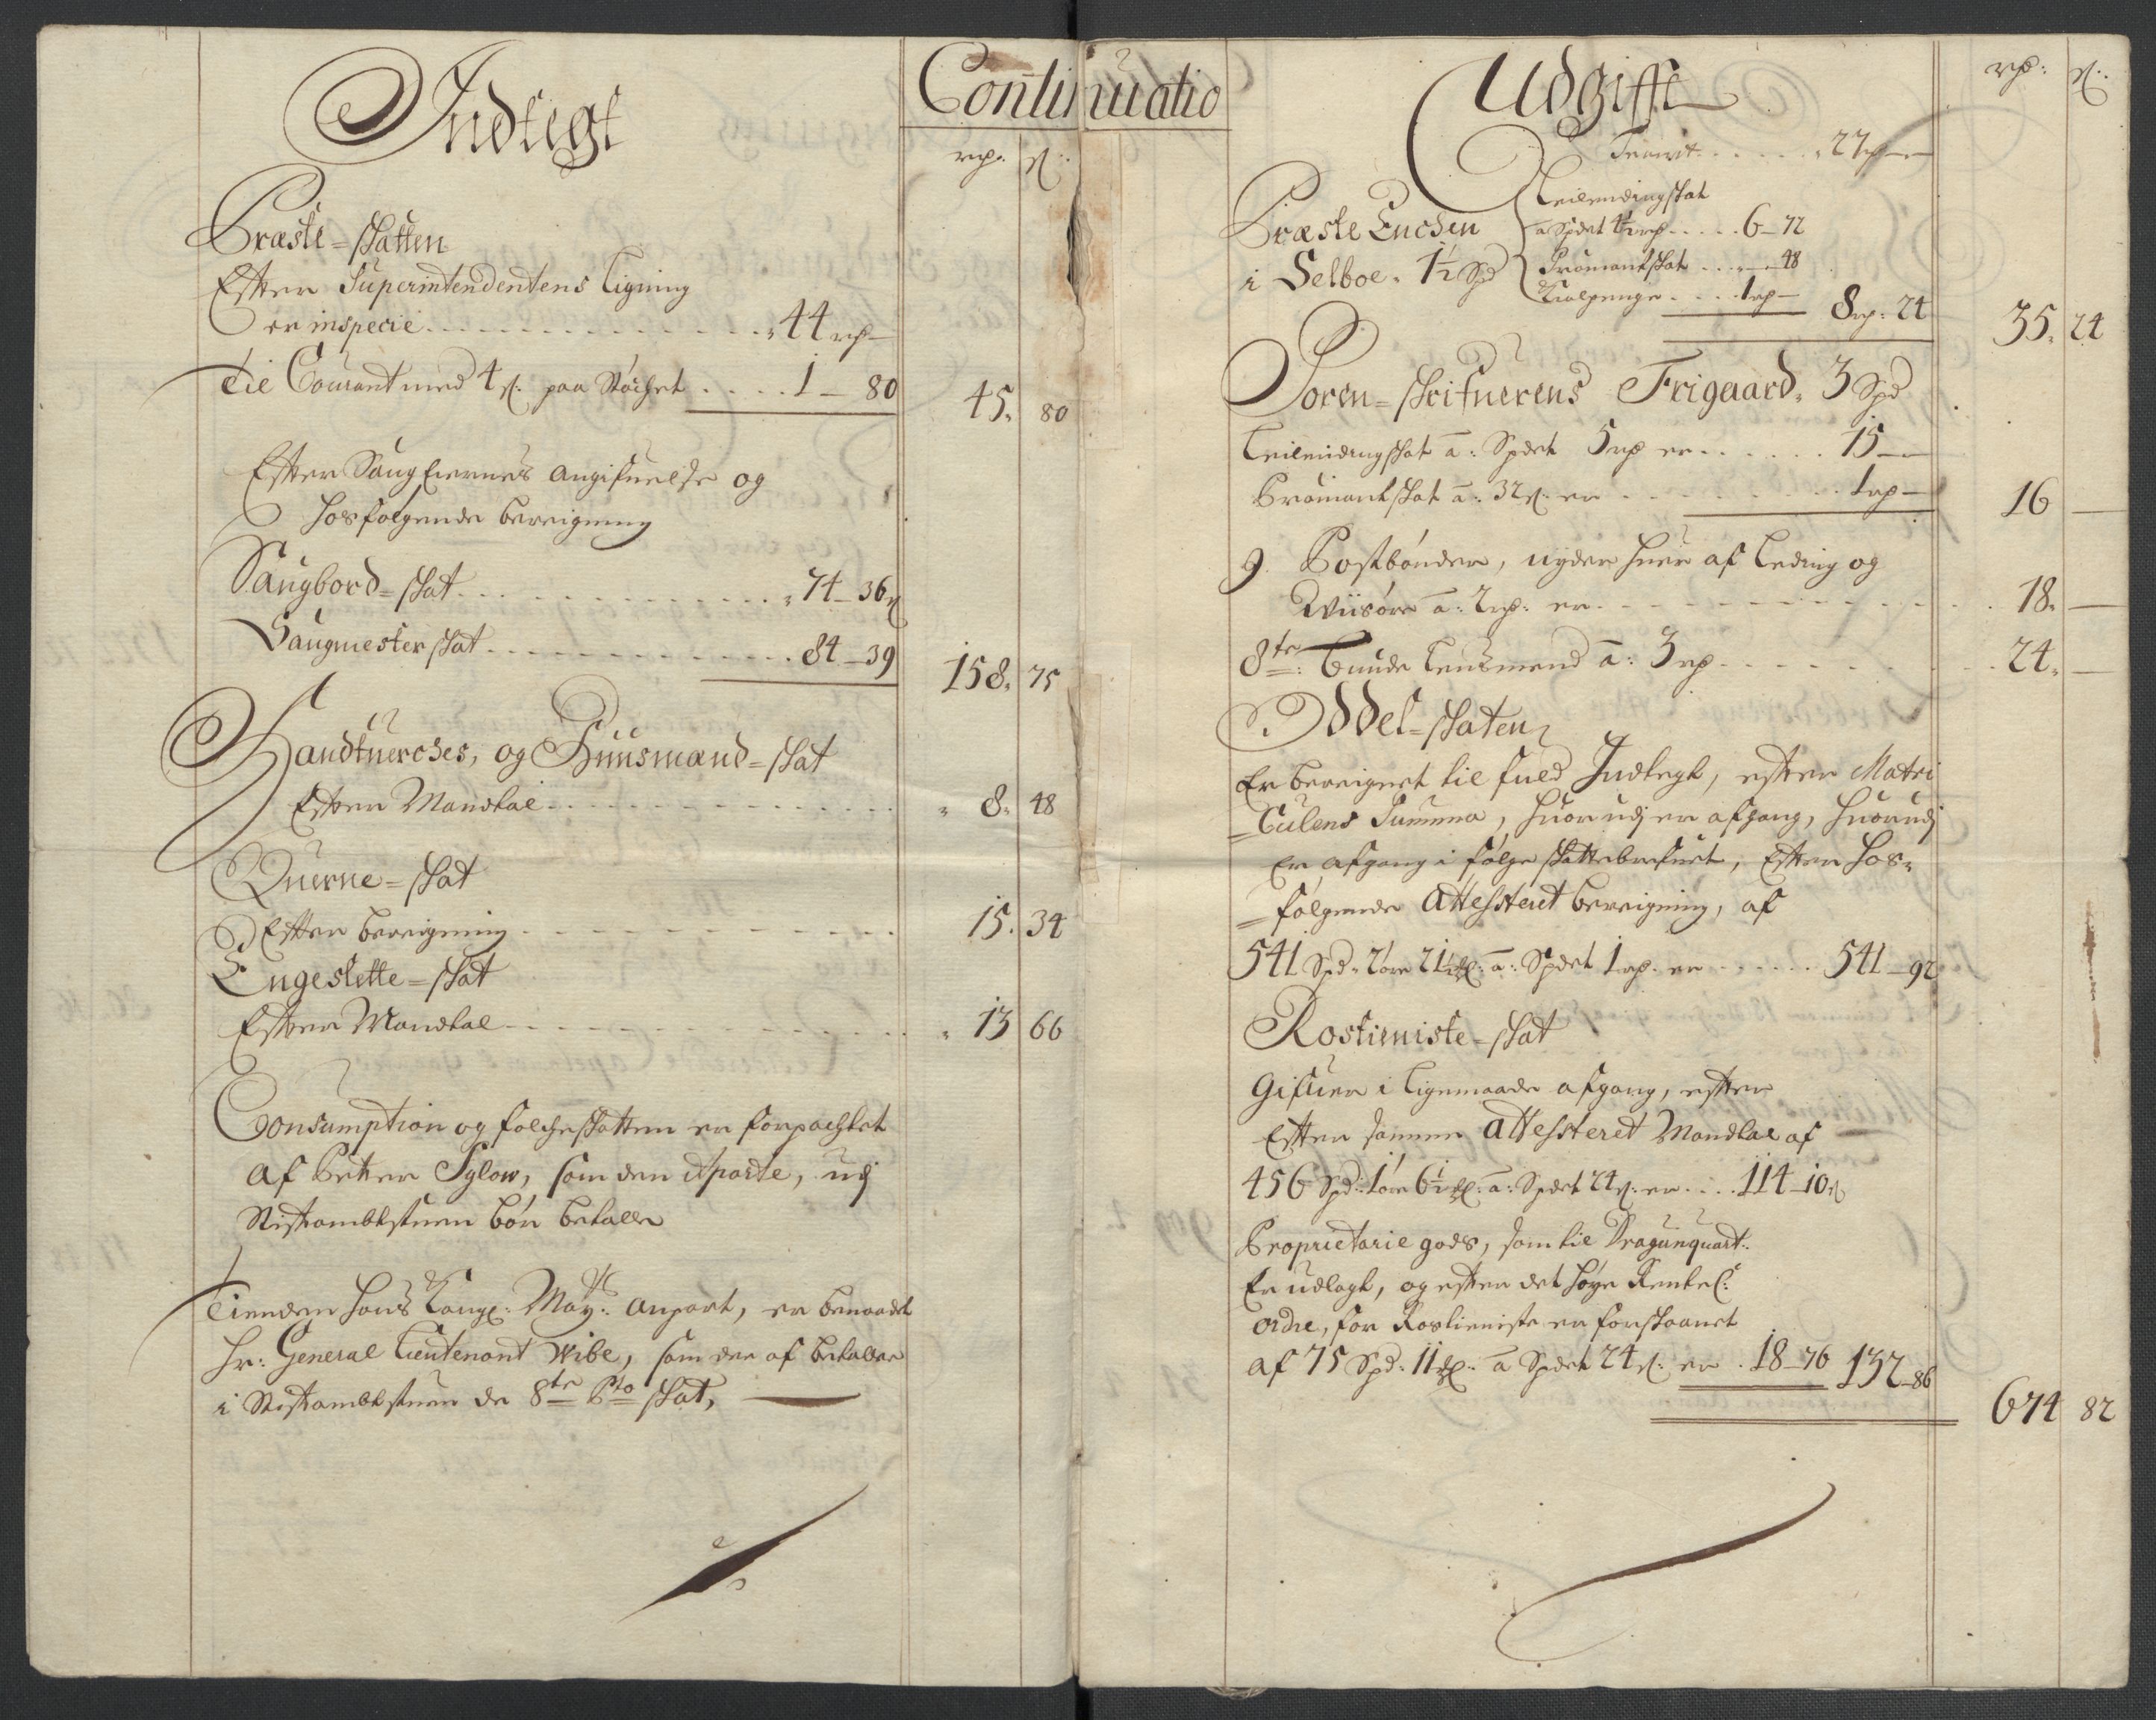 Indtegt
Continuatio
rd: s:
Præste=skatten
Efter Superintendentens Ligning
er in specie . . . 44 rd —
Til Courant med 4 s: paa Støchet . . . . 1 — 80
45. 80
Efter Saug Eiernes angifuelse og
hosfølgende bereigning
Saugbord=skat . . . 74 — 36 s
Saugmester skat . . . 84 — 39
158. 75
Handtverches, og Huusmænd=skat
Efter Mandtal . . . 8. 48
Querne=skat
Efter bereigning . . . 15. 34
Engeslette=skat
Efter Mandtal . . . 13 66
Consumption og folcheskatten er forpachtet
af Petter Sylow, som den Aparte, udj
Stiftambtstuen bør betalle
Tienden hans Kongl: May:ts anpart, er benaadet
Hr: General Lieutenant Wibe, som der af betaller
i Stiftambtstuen de 8te Pto skat,
Udgifft
rd: s:
Transpt. . . . . . 27 rd —
Leilendingskat
Præste Enchen { a Spdet 4½ rd . . . . . 6 — 72
i Selboe. 1½ Spd { Proviantskat . . . — 48
. . . . 1 rd —
8 rd: 24
35. 24
Soren=skrifuerens Frigaard. 3 Spd
Leilendingskat a: Spdet 5 rd er . . . . . . 15 —
Proviantskat a: 32 s: er . . . 1 rd —
16 —
9. Postbønder, nyder huer af Leding og
Wiisøre a: 2 rd: er . . . 18. —
8te: Bunde Lensmend a: 3 rd . . . 24. —
Oddel=skaten
Er bereignet til fuld Indtegt, efter Matri
=Culens Summa, huorudj er afgang, huorudj
Er afgang i følge skattebrefuet, Efter hos=
=følgende Attesteret bereigning, af
541 Spd. 2 øre 21½ a: Spdet 1 rd. er . . . . . . 541 — 92
Rostieniste=skat
Gifuer i Ligemaade afgang, efter
Efter samme Attesteret Mandtal af
456 Spd: 1 øre 6½ a: Spdet 24 s: er . . . . 114 — 10 s
Proprietarie gods, som til Dragunquart:
Er udlagt, og efter det høye Rente C:
ordre, for Rostieniste er forskaanet
af 75 Spd: 11 a Spdet 24 s: er . 18 — 76 132 — 86
674 82